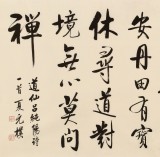 安丹田有寶
休尋道對
境無心莫問
禪
道仙呂純陽詩
一首夏元樸